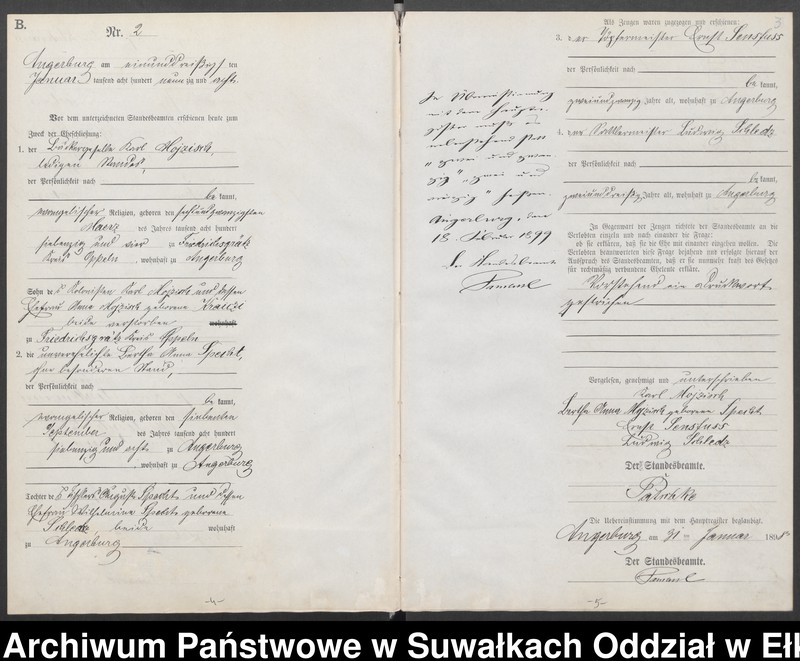 B.
Nr. 2
Angerburg am einunddreißigsten
Januar tausend acht hundert neunzig und acht.
Vor dem unterzeichneten Standesbeamten erschienen heute zum
Zweck der Eheschließung:
1. der Bäckergeselle Karl Hozisck,
ledigen Standes,
der Persönlichkeit nach
be kannt,
evangelischer Religion, geboren den sechsundzwanzigsten
Maerz des Jahres tausend acht hundert
siebenzig und vier zu Friedrichsgrätz
Kreis Oppeln, wohnhaft zu Angerburg
Sohn des Kolonisten Karl und dessen
Ehefrau Anna geborene
beide verstorben wohnhaft
zu Friedrichsgrätz Kreis Oppeln
2. die unverehelichte Bertha Anna Specht,
ohne besonderen Stand,
der Persönlichkeit nach
be kannt,
evangelischer Religion, geboren den siebenten
September des Jahres tausend acht hundert
siebenzig und acht zu Angerburg
, wohnhaft zu Angerburg
Tochter des August Specht und dessen
Ehefrau Wilhelmine Specht geborene
Schledz, beide wohnhaft
zu Angerburg
-4-
In Übereinstimmung
mit dem Haupt-
register muß es
nebenstehend statt
"zwei und zwan-
zig" "zwei und
vierzig" heißen.
Angerburg, den
18. Februar 1899
Der Standesbeamte
3
Als Zeugen waren zugezogen und erschienen:
3. der Töpfermeister Ernst Sensfuss
der Persönlichkeit nach
be kannt,
zweiundzwanzig Jahre alt, wohnhaft zu Angerburg
4. der Sattlermeister Ludwig Schledz
der Persönlichkeit nach
be kannt,
zweiunddreißig Jahre alt, wohnhaft zu Angerburg
In Gegenwart der Zeugen richtete der Standesbeamte an die
Verlobten einzeln und nach einander die Frage:
ob sie erklären, daß sie die Ehe mit einander eingehen wollen. Die
Verlobten beantworteten diese Frage bejahend und erfolgte hierauf der
Ausspruch des Standesbeamten, daß er sie nunmehr kraft des Gesetzes
für rechtmäßig verbundene Eheleute erkläre.
Vorstehend ein Druckwort
gestrichen
Vorgelesen, genehmigt und unterschrieben
Karl
Bertha Anna geborene Specht
Ernst Sensfuss
Ludwig Schledz
Der Standesbeamte.
Patschke
Die Uebereinstimmung mit dem Hauptregister beglaubigt.
Angerburg am 31 ten Januar 1898
Der Standesbeamte.
-5-
Archiwum Państwowe w Suwałkach Oddział w Ełk